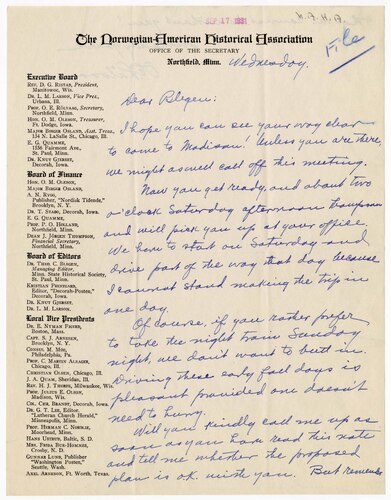 SEP 17 1931
N. A. H. A.
File
The Norwegian-American Historical Association
OFFICE OF THE SECRETARY
Northfield, Minn.
Wednesday
Executive Board
REV. D. G. RISTAD, President,
Manitowoc, Wis.
DR. L. M. LARSON, Vice Pres.,
Urbana, Ill.
PROF. O. E. RÖLVAAG, Secretary,
Northfield, Minn.
HON. O. M. OLESON, Treasurer,
Ft. Dodge, Iowa.
MAJOR BIRGER OSLAND, Asst. Treas.,
134 N. LaSalle St., Chicago, Ill.
E. G. QUAMME,
1356 Fairmont Ave.,
St. Paul, Minn.
DR. KNUT GJERSET,
Decorah, Iowa.
Board of Finance
HON. O. M. OLESON,
MAJOR BIRGER OSLAND,
A. N. RYGG,
Publisher, "Nordisk Tidende,"
Brooklyn, N. Y.
DR. T. STABO, Decorah, Iowa.
E. G. QUAMME,
PROF. P. O. HOLLAND,
Northfield, Minn.
DEAN J. JÖRGEN THOMPSON,
Financial Secretary,
Northfield, Minn.
Board of Editors
DR. THEO. C. BLEGEN,
Managing Editor,
Minn. State Historical Society,
St. Paul, Minn.
KRISTIAN PRESTGARD,
Editor, "Decorah-Posten,"
Decorah, Iowa.
DR. KNUT GJERSET,
DR. L. M. LARSON,
Local Vice Presidents
DR. E. NYMAN FIGVED,
Boston, Mass.
CAPT. S. J. ARNESEN,
Brooklyn, N. Y.
CONSUL M. MOE,
Philadelphia, Pa.
PROF. C. MARTIN ALSAGER,
Chicago, Ill.
CHRISTIAN OLSEN, Chicago, Ill.
J. A. QUAM, Sheridan, Ill.
REV. H. J. THORPE, Milwaukee, Wis.
PROF. JULIUS E. OLSON,
Madison, Wis.
CH. CHR. BRANDT, Decorah, Iowa.
DR. G. T. LEE, Editor,
"Lutheran Church Herald,"
Minneapolis, Minn.
PROF. HERMAN C. NORDLIE,
Moorhead, Minn.
HANS USTRUD, Baltic, S. D.
MRS. FRIDA BUE-HOMNES,
Crosby, N. D.
GUNNAR LUND, Publisher
"Washington Posten,"
Seattle, Wash.
AXEL ARNESON, Ft. Worth, Texas.
Dear Blegen:
I hope you can see your way clear
to come to Madison! Unless you are there,
we might as well call off this meeting.
Now you get ready, and about two
o'clock Saturday afternoon Thompson
and will pick you up at your office.
We have to start on Saturday and
drive part of the way that day because
I cannot stand making the trip in
one day.
Of course, if you rather prefer
to take the night train Sunday
night, we don't want to butt in.
Driving these early fall days is
pleasant provided one doesn't
need to hurry.
Will you kindly call me up as
soon as you have read this note
and tell me whether the proposed
plan is o.k. with you. But remember